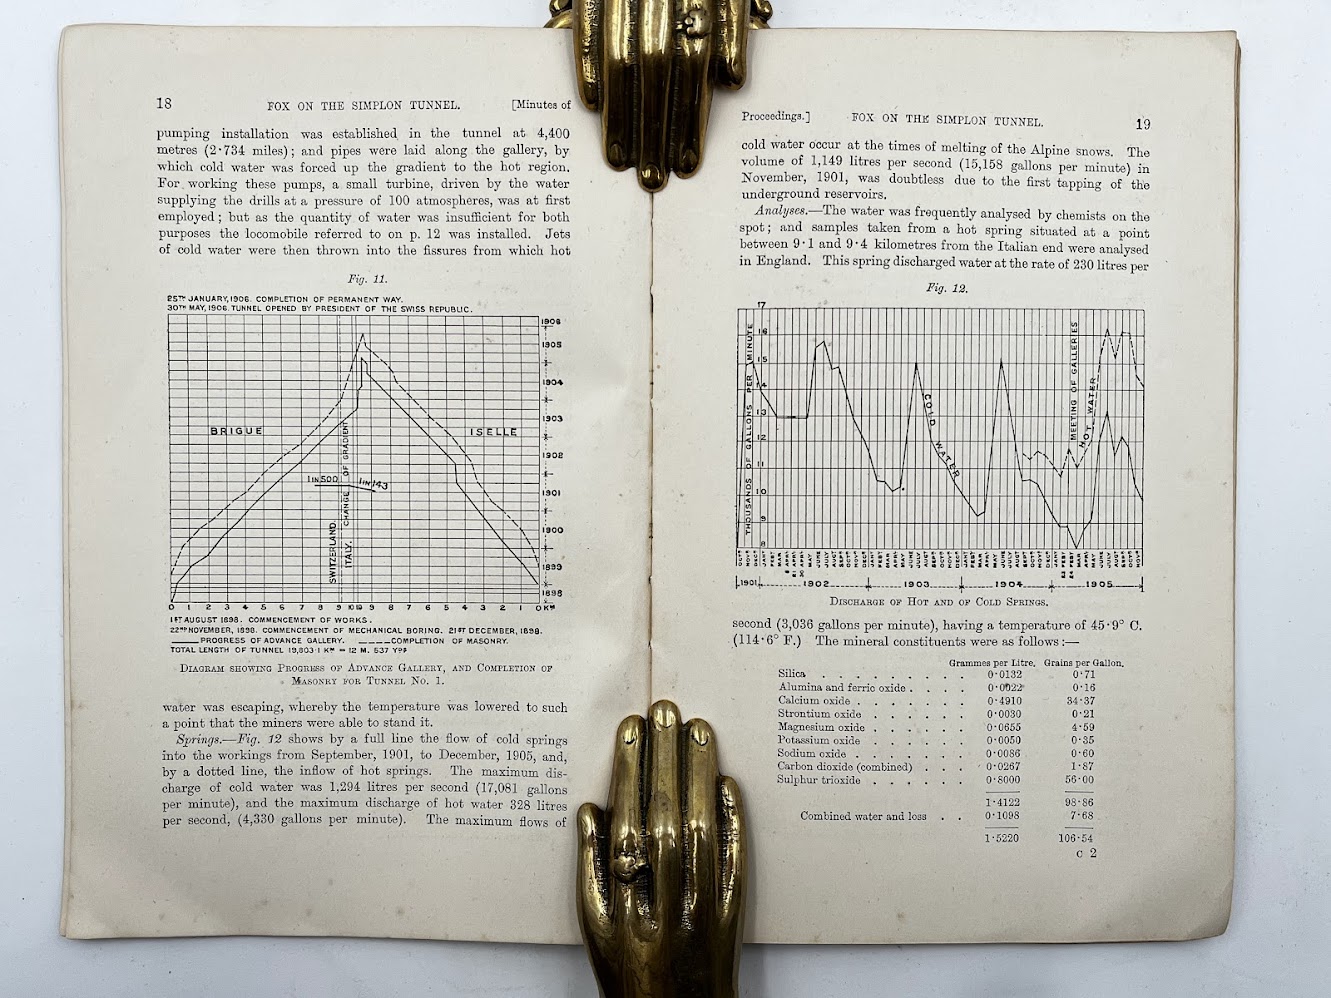 18 FOX ON THE SIMPLON TUNNEL. [Minutes of
pumping installation was established in the tunnel at 4,400
metres (2·734 miles); and pipes were laid along the gallery, by
which cold water was forced up the gradient to the hot region.
For working these pumps, a small turbine, driven by the water
supplying the drills at a pressure of 100 atmospheres, was at first
employed; but as the quantity of water was insufficient for both
purposes the locomobile referred to on p. 12 was installed. Jets
of cold water were then thrown into the fissures from which hot
Fig. 11.
25TH JANUARY, 1906. COMPLETION OF PERMANENT WAY.
30TH MAY, 1906. TUNNEL OPENED BY PRESIDENT OF THE SWISS REPUBLIC.
1906
1905
1904
1903
BRIGUE
ISELLE
1902
1 IN 500
1 IN 143
1901
1900
1899
1898
SWITZERLAND.
ITALY.
CHANGE OF GRADIENT
0 1 2 3 4 5 6 7 8 9 10 10 9 8 7 6 5 4 3 2 1 0 KM
1ST AUGUST 1898. COMMENCEMENT OF WORKS.
22ND NOVEMBER, 1898. COMMENCEMENT OF MECHANICAL BORING. 21ST DECEMBER, 1898.
PROGRESS OF ADVANCE GALLERY. COMPLETION OF MASONRY.
TOTAL LENGTH OF TUNNEL 19,803·1 KM = 12 M. 537 YDS
DIAGRAM SHOWING PROGRESS OF ADVANCE GALLERY, AND COMPLETION OF
MASONRY FOR TUNNEL NO. 1.
water was escaping, whereby the temperature was lowered to such
a point that the miners were able to stand it.
Springs.—Fig. 12 shows by a full line the flow of cold springs
into the workings from September, 1901, to December, 1905, and,
by a dotted line, the inflow of hot springs. The maximum dis-
charge of cold water was 1,294 litres per second (17,081 gallons
per minute), and the maximum discharge of hot water 328 litres
per second, (4,330 gallons per minute). The maximum flows of
Proceedings.] FOX ON THE SIMPLON TUNNEL. 19
cold water occur at the times of melting of the Alpine snows. The
volume of 1,149 litres per second (15,158 gallons per minute) in
November, 1901, was doubtless due to the first tapping of the
underground reservoirs.
Analyses.—The water was frequently analysed by chemists on the
spot; and samples taken from a hot spring situated at a point
between 9·1 and 9·4 kilometres from the Italian end were analysed
in England. This spring discharged water at the rate of 230 litres per
Fig. 12.
THOUSANDS OF GALLONS PER MINUTE
17
16
15
14
13
12
11
10
9
8
COLD WATER
MEETING OF GALLERIES
HOT WATER
1901 1902 1903 1904 1905
DISCHARGE OF HOT AND OF COLD SPRINGS.
second (3,036 gallons per minute), having a temperature of 45·9° C.
(114·6° F.) The mineral constituents were as follows:—
Grammes per Litre. Grains per Gallon.
Silica . . . . . . . . 0·0132 0·71
Alumina and ferric oxide . . . . 0·0022 0·16
Calcium oxide . . . . . . 0·4910 34·37
Strontium oxide . . . . . . 0·0030 0·21
Magnesium oxide . . . . . . 0·0655 4·59
Potassium oxide . . . . . . 0·0050 0·35
Sodium oxide . . . . . . 0·0086 0·60
Carbon dioxide (combined) . . . 0·0267 1·87
Sulphur trioxide . . . . . . 0·8000 56·00
1·4122 98·86
Combined water and loss . . 0·1098 7·68
1·5220 106·54
C 2